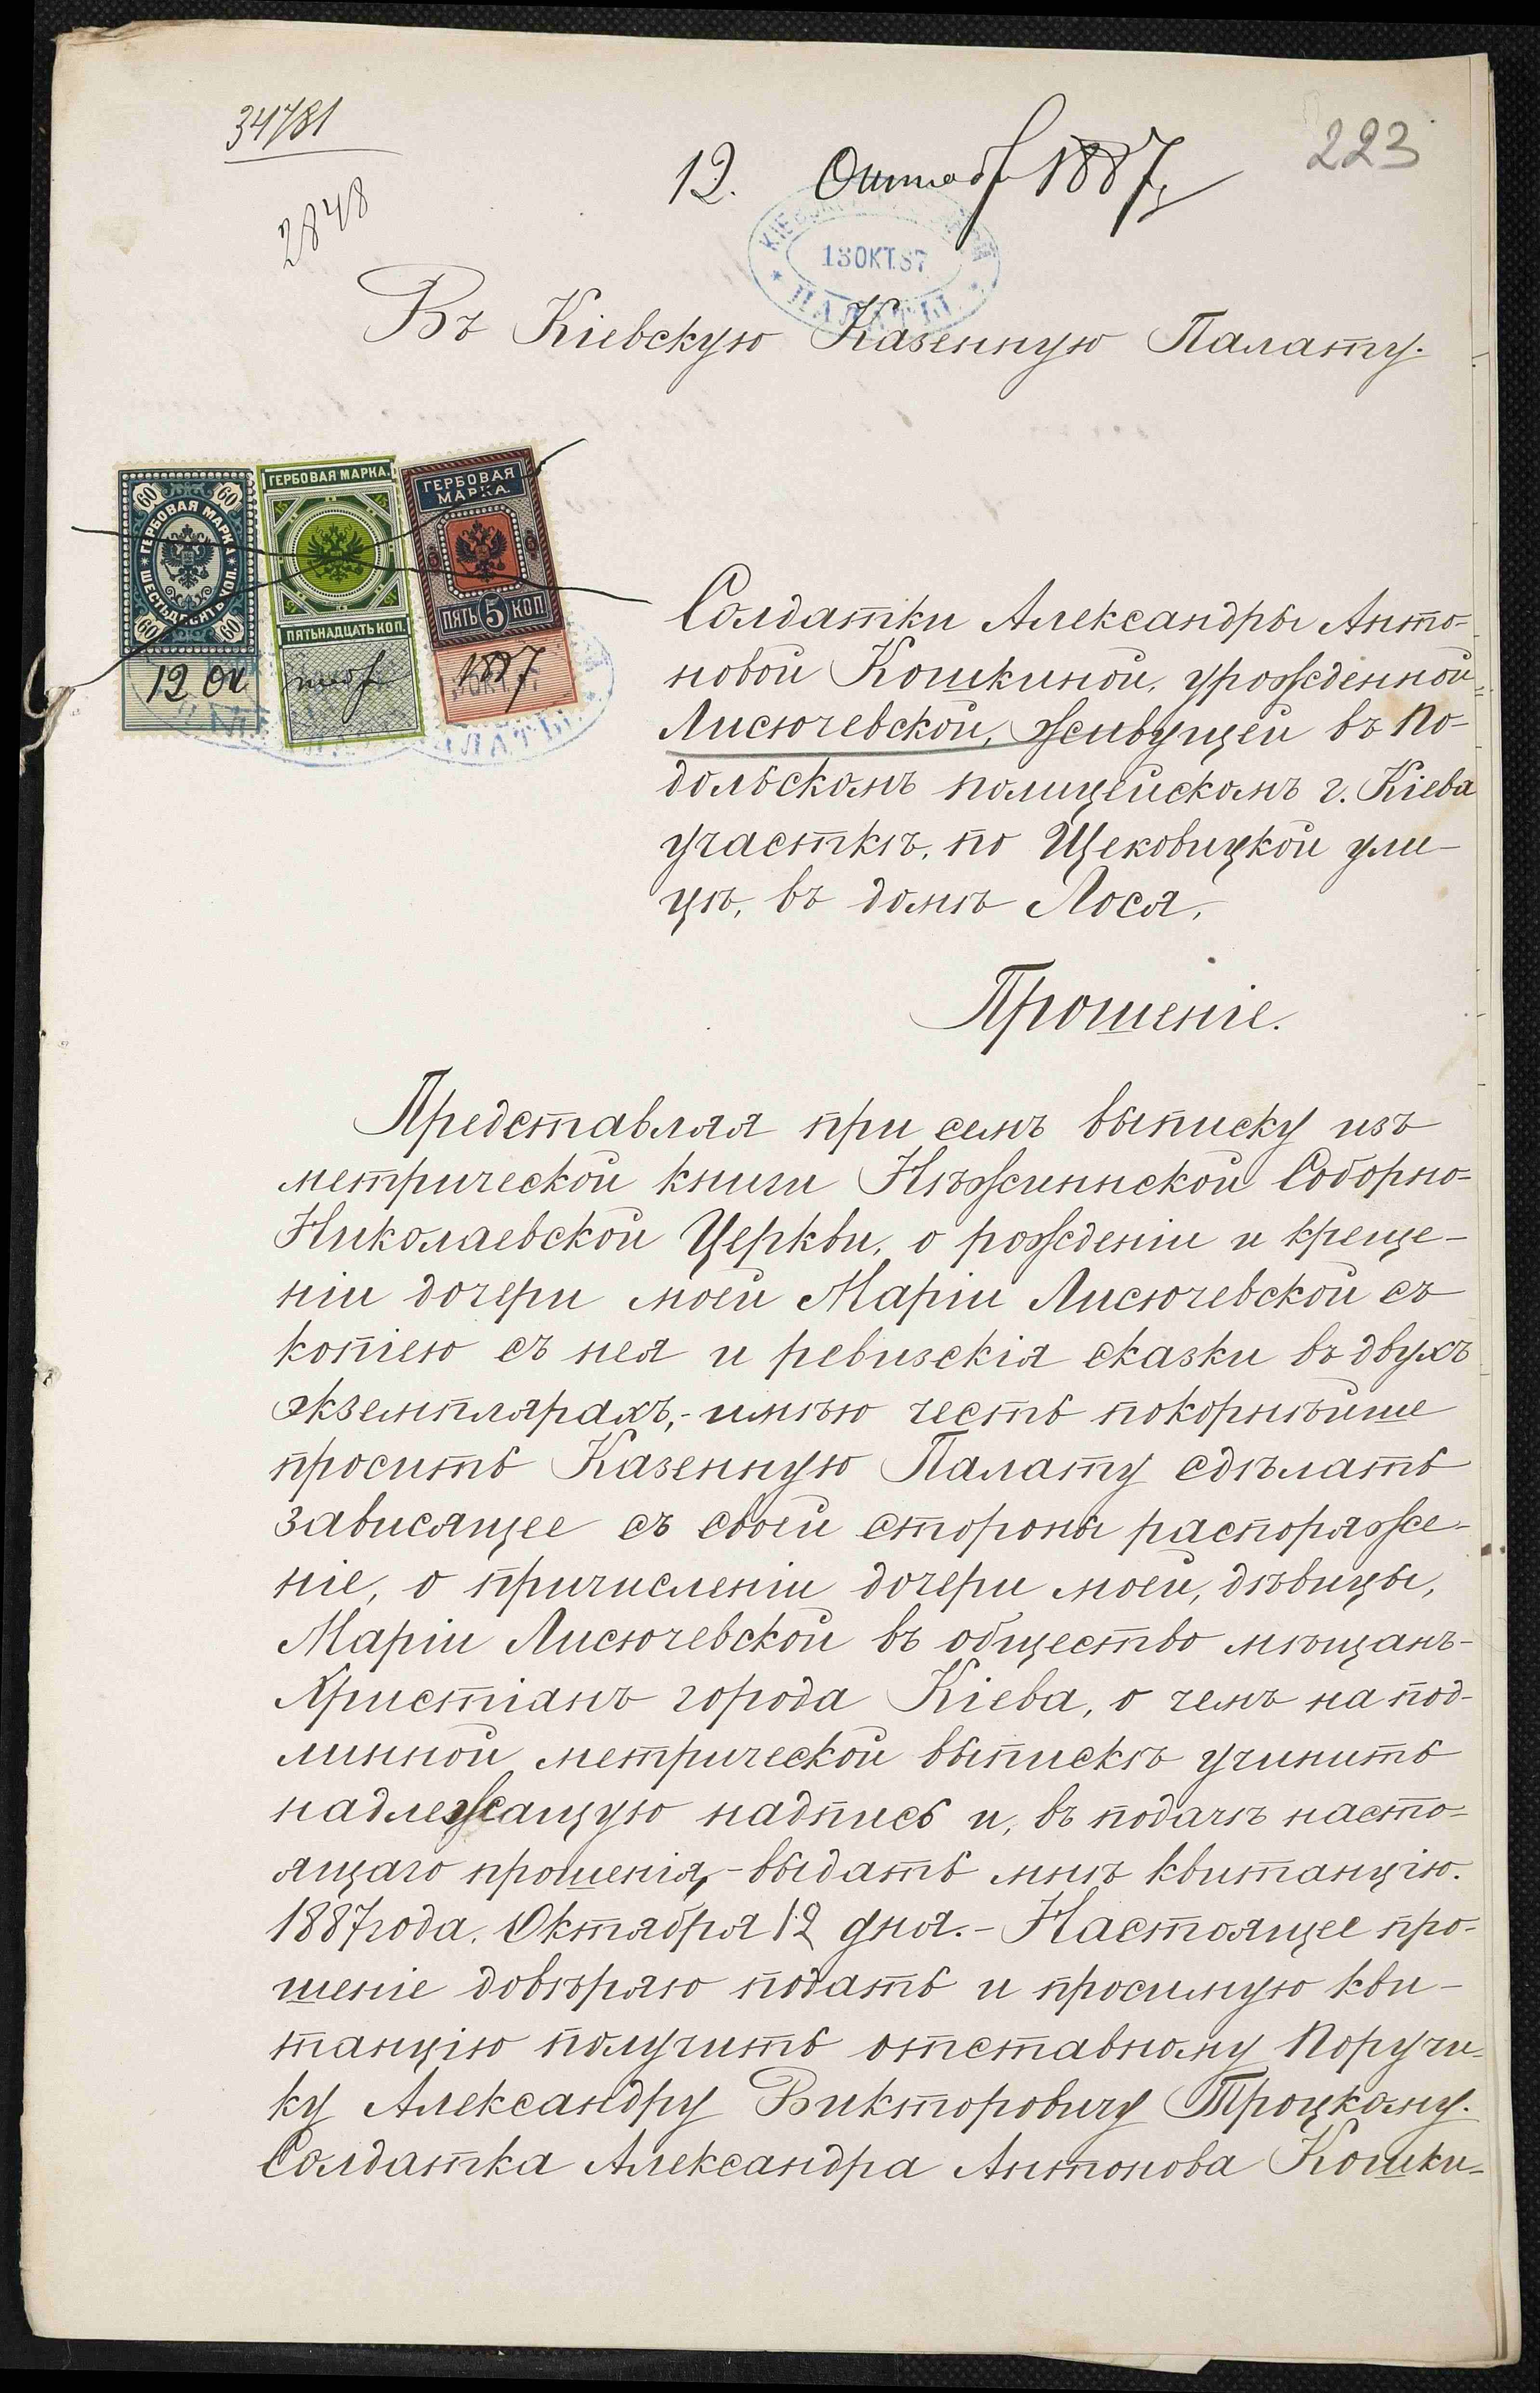 34781
223
12. Октяб 1887
2848
13 ОКТ. 87
ПАЛАТЫ
Въ Кіевскую Казенную Палату.
60 60
ГЕРБОВАЯ МАРКА
ШЕСТЬДЕСЯТЪ КОП.
60 60
12 Ок
ГЕРБОВАЯ МАРКА.
15 15
ПЯТЬНАДЦАТЬ КОП.
тяб
ГЕРБОВАЯ
МАРКА.
5 5
ПЯТЬ 5 КОП
1887
Солдатки Александры Анто=
новой Кошкиной, урожденной
Лисючевской, живущей въ По-
дольскомъ полицейскомъ г. Кіева
участкѣ, по Щековицкой ули-
цѣ, въ домѣ Лося.
Прошеніе.
Представляя при семъ выписку изъ
метрической книги Нѣжинской Соборно-
Николаевской Церкви, о рожденіи и креще-
ніи дочери моей Маріи Лисючевской съ
копіею съ нея и ревизскія сказки въ двухъ
экземплярахъ,- имѣю честь покорнѣйше
просить Казенную Палату сдѣлать
зависящее съ своей стороны распоряже-
ніе, о причисленіи дочери моей, дѣвицы,
Маріи Лисючевской въ общество мѣщанъ-
Христіанъ города Кіева, о чемъ на под-
линной метрической выпискѣ учинить
надлежащую надпись и, въ подачѣ насто-
ящаго прошенія,- выдать мнѣ квитанцію.
1887 года. Октября 12 дня.- Настоящее про-
шеніе довѣряю подать и просимую кви-
танцію получить отставному Поручи-
ку Александру Викторовичу Троцкому.
Солдатка Александра Антонова Кошки-